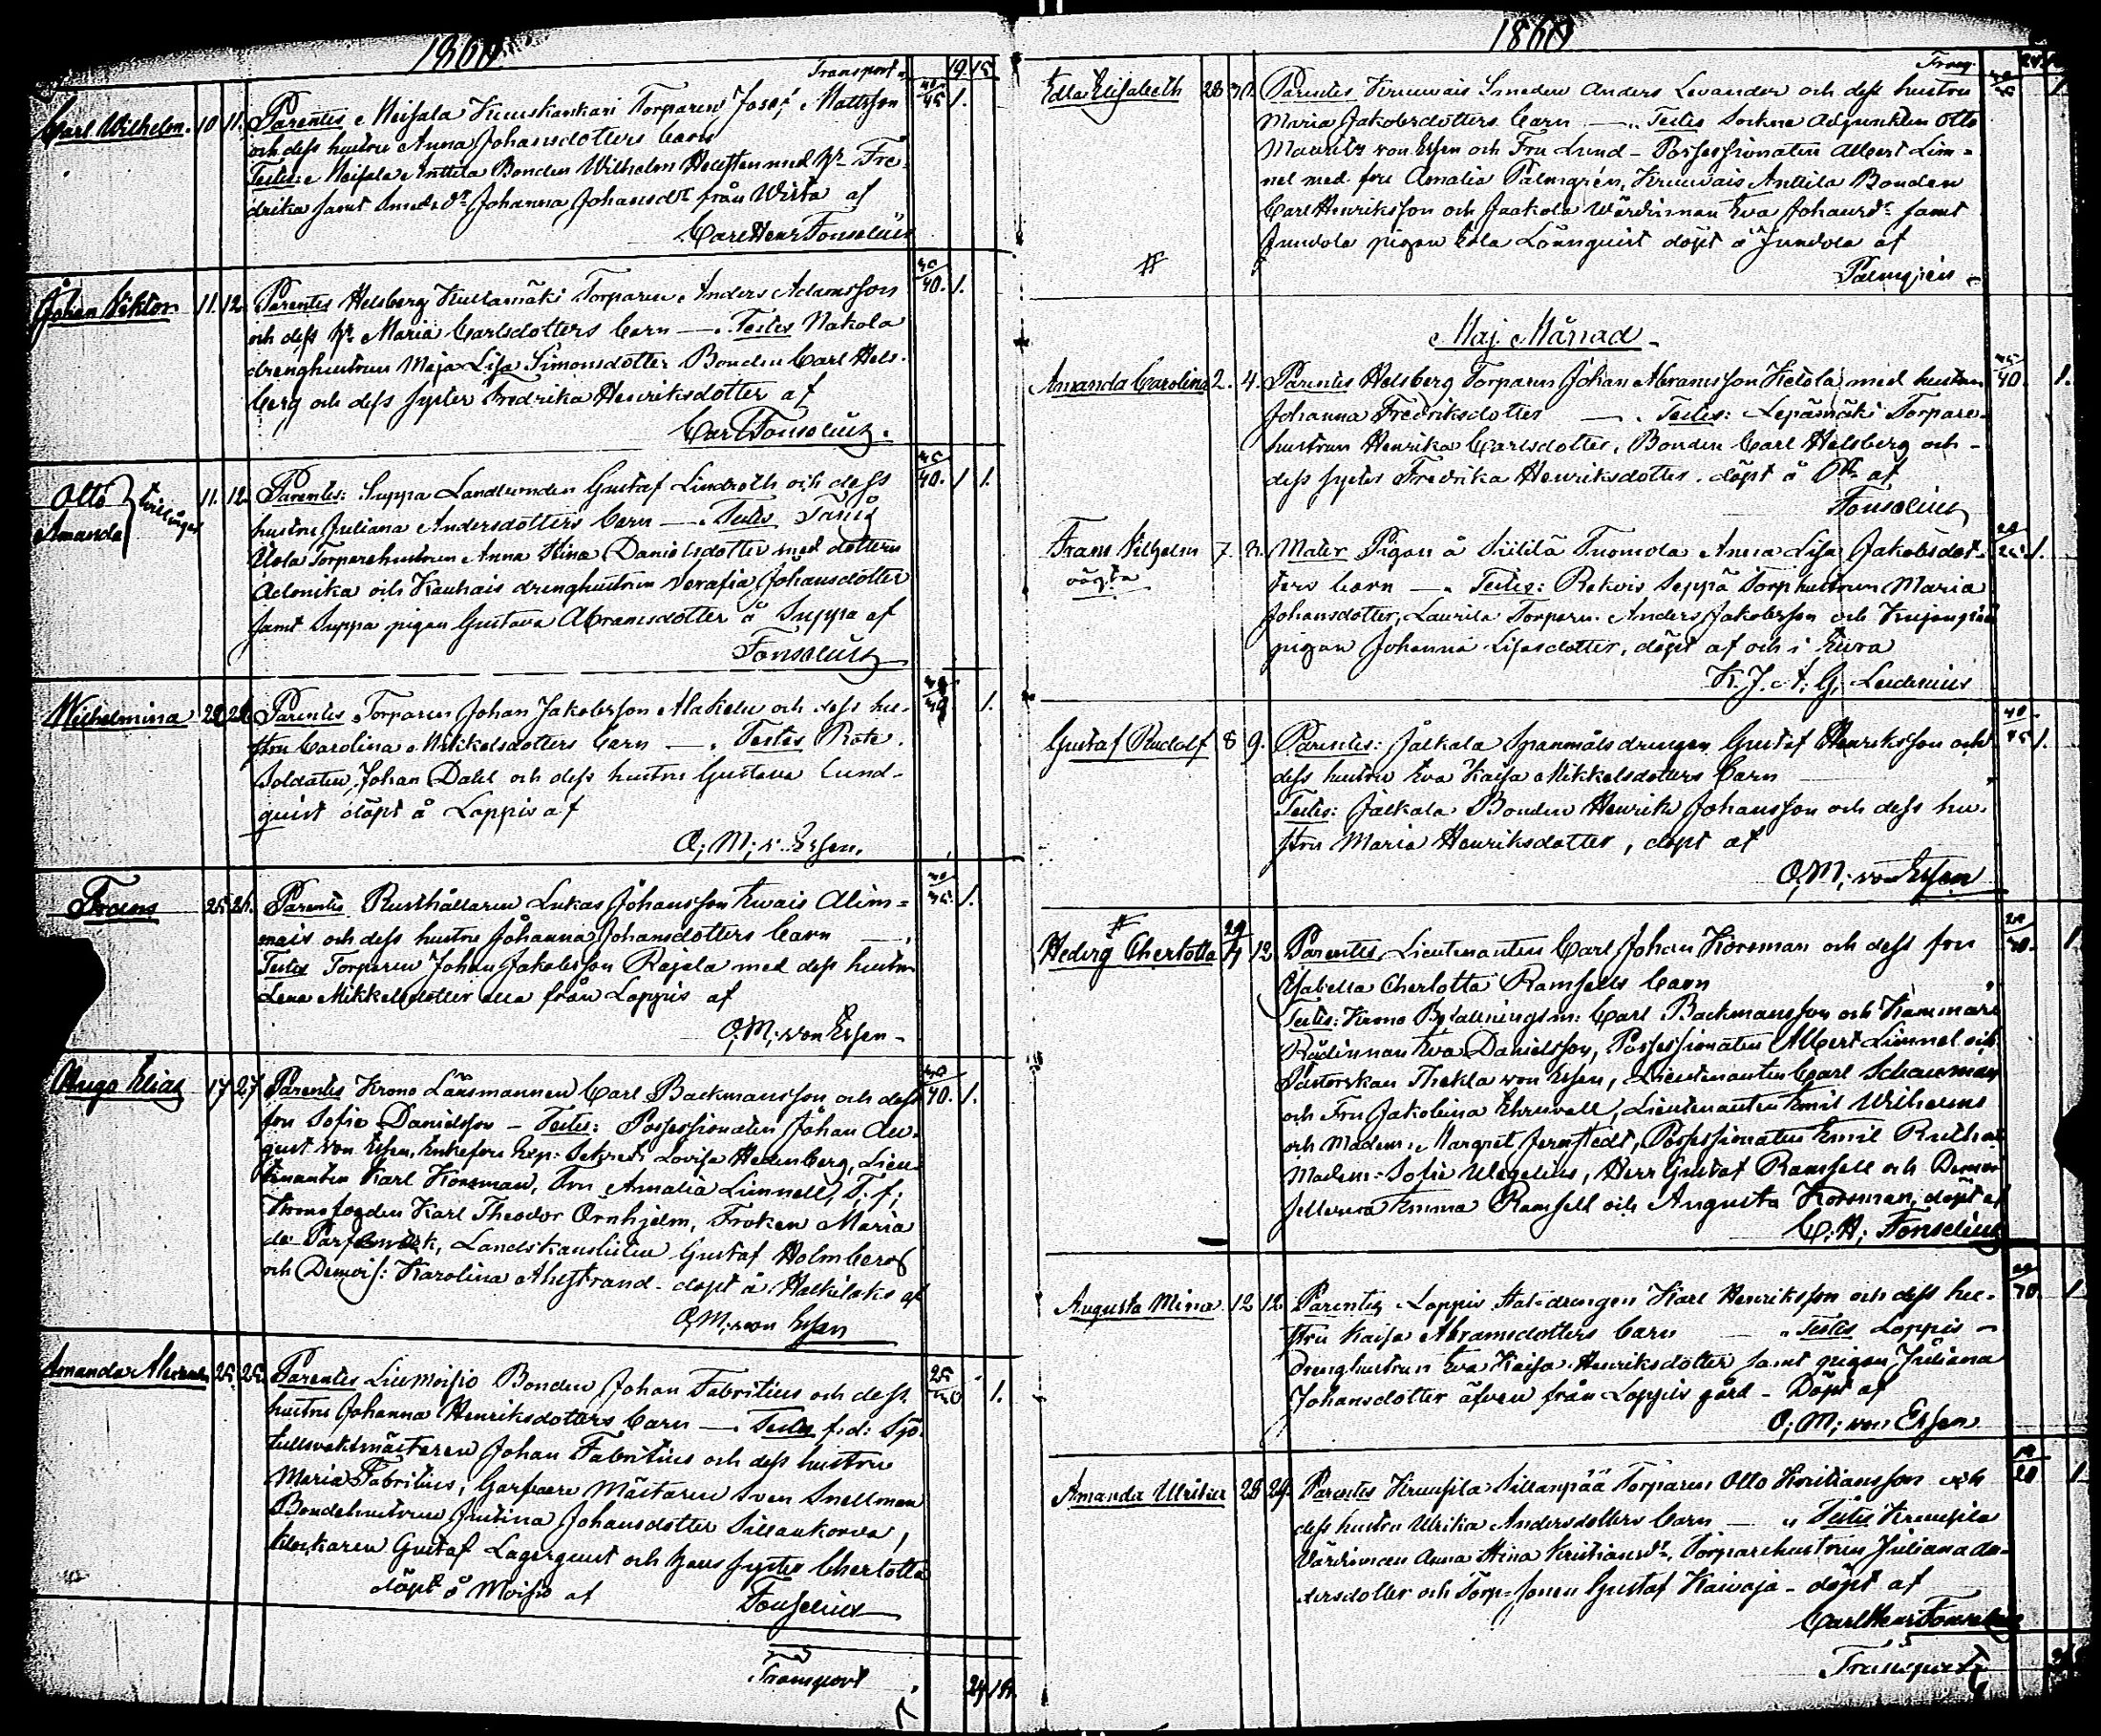 1860
Transport 19. 15.
Carl Wilhelm. 10 11. Parentes Neisala Kuuskankari Torparen Josef Mattsson 40/45 1.
och dess hustru Anna Johansdotters barn
Testes: Neisala Anttila Bonden Wilhelm med hr Fre-
drika samt Johanna Johansdr från Wirta af
Carl Henr Fonselius
Johan Viktor 11. 12. Parentes Helsberg Kullamäki Torparen Anders Adamsson 40. 1.
och dess hr Maria Carlsdotters barn — Testes Nakola
drenghustrun Maja Lisa Simonsdotter Bonden Carl Hels-
berg och dess syster Fredrika Henriksdotter af
Carl Fonselius.
Otto
Amanda tvillingar 11. 12. Parentes: Suppa Landbonden Gustaf Lindroth och dess 40. 1 1.
hustru Juliana Andersdotters barn — Testes
Torparehustrun Anna Stina Danielsdotter med dottern
och Kauhais drenghustrun Serafia Johansdotter
samt Suppa pigan Gustava Abramsdotter å Suppa af
Fonselius
Wilhelmina 22 24 Parentes Torparen Johan Jakobsson Alakylä och dess hu- 1.
stru Carolina Mikkelsdotters barn — Testes Rote-
Soldaten Johan Dahl och dess hustru Gustava Lund-
quist döpt å Lappis af
O; M; v. Essen.
Frans 25 26. Parentes Rusthållaren Lukas Johansson Alim- 1.
mais och dess hustru Johanna Johansdotters barn —
Testes Torparen Johan Jakobsson Rajala med dess hustru
Lena Mikkelsdotter alla från Lappis af
O; M; von Essen -
Hugo Elias 17 27 Parentes Krono Länsmannen Carl Backmansson och dess 40. 1.
fru Sofie Danielsson - Testes: Possessionaten Johan Au-
gust von Essen, Enkefru Exp: Sekret: Lovisa Hedenberg, Lieu-
tenanten Karl Korsman, Fru Amalia Limnell, T: f;
Kronofogden Karl Theodor Örnhjelm, Fröken Maria
de , Landskanslisten Gustaf Holmberg
och Demois: Karolina Ahlstrand - döpt å af
O; M; von Essen
Amanda 25. 25. Parentes Liimoisio Bonden Johan Fabritius och dess 25 1.
hustru Johanna Henriksdotters barn — Testes f. d: Sjö-
tullvaktmästaren Johan Fabritius och dess hustru
Maria Fabritius, Garfvare Mästaren Sven Snellman
Bondehustrun Justina Johansdotter Sillankorva,
Klockaren Gustaf Lagerquist och hans syster Charlotta
döpt å Moisio af Fonselius
Transport 24. 18.
1860
Transp.
Edla Elisabeth 28 30. Parentes Kruuvais Smeden Anders Levander och dess hustru 1
Maria Jakobsdotters barn —. Testes Sockne Adjunkten Otto
Mauritz von Essen och Fru Lund - Possessionaten Albert Lim-
nel med fru Amalia Palmgrén, Kruuvais Anttila Bonden
Carl Henriksson och Jaakola Wärdinnan Eva Johansdr samt
Junvola pigan Edla Lönnquist döpt å Junvola af
Palmgrén
Maj Månad
Amanda Carolina 2. 4. Parentes Helsberg Torparen Johan Abramsson Ketola med hustru 40. 1.
Johanna Fredriksdotter —. Testes: Lepämäki Torpare-
hustrun Henrika Carlsdotter, Bonden Carl Helsberg och
dess syster Fredrika Henriksdotter. döpt å af
Fonselius
Frans Vilhelm 7. Mater Pigan å Tuomola Anna Lisa Jakobsdot- 1.
oägta
ters barn —. Testes: Seppä Torphustrun Maria
Johansdotter, Laurila Torparen Anders Jakobsson och
pigan Johanna Lisasdotter, döpt af och i Eura
K. J. A; G;
Gustaf Rudolf 8 9. Parentes: Jalkala Spannmåls drengen Gustaf Henriksson och 1.
dess hustru Eva Kaisa Mikkelsdotters barn
Testes: Jalkala Bonden Henrik Johansson och dess hu-
stru Maria Henriksdotter, döpt af
O; M; von Essen
Hedvig Cherlotta 29/4 12 Parentes Lieutenanten Carl Johan Korsman och dess fru 1.
Isabella Cherlotta Ramsells barn
Testes: Krono Befallningsm: Carl Backmansson och Kammare
Rådinnan Eva Danielsson, Possessionaten Albert Limnel och
Pastorskan Thekla von Essen, Lieutenanten Carl Schauman
och Fru Jakobina Ehrnvall, Lieutenanten Emil Wilhelms
och Madem: Margret Jernstedt, Possessionaten Emil
Madem: Sofie Wegelius, Herr Gustaf Ramsell och Demoi-
sellerna Emma Ramsell och Augusta Korsman, döpt af
C: H; Fonselius
Augusta Mina 12 12. Parentes Lappis Stat-drengen Karl Henriksson och dess hu- 1
stru Kaisa Abramsdotters barn — Testes Lappis
Drenghustrun Eva Kaisa Henriksdotter samt pigan Juliana
Johansdotter äfven från Lappis gård - Döpt af
O; M; von Essen
Amanda Ulrika 28 29. Parentes Kruusila Sillanpää Torparen Otto Kristiansson och 1
dess hustru Ulrika Andersdotters barn — Testes Kruusila
Värdinnan Anna Stina Kristiansdr, Torparehustrun Juliana An-
dersdotter och Torp-sonen Gustaf Kaivoja - döpt af
Carl Henr Fonselius
Transport